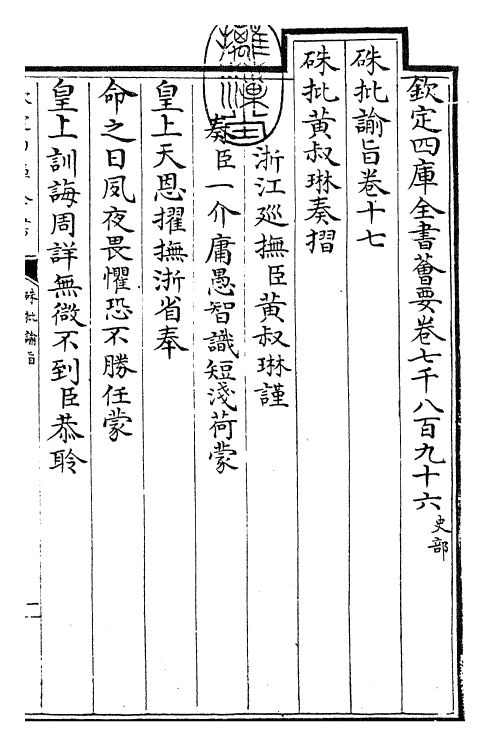 欽定四庫全書薈要卷七千八百九十六 史部
硃批諭旨卷十七
硃批黃叔琳奏摺
浙江廵撫臣黃叔琳謹
奏臣一介庸愚智識短淺荷蒙
皇上天恩擢撫浙省奉
命之日夙夜畏懼恐不勝任蒙
皇上訓誨周詳無微不到臣恭聆
硃批諭旨